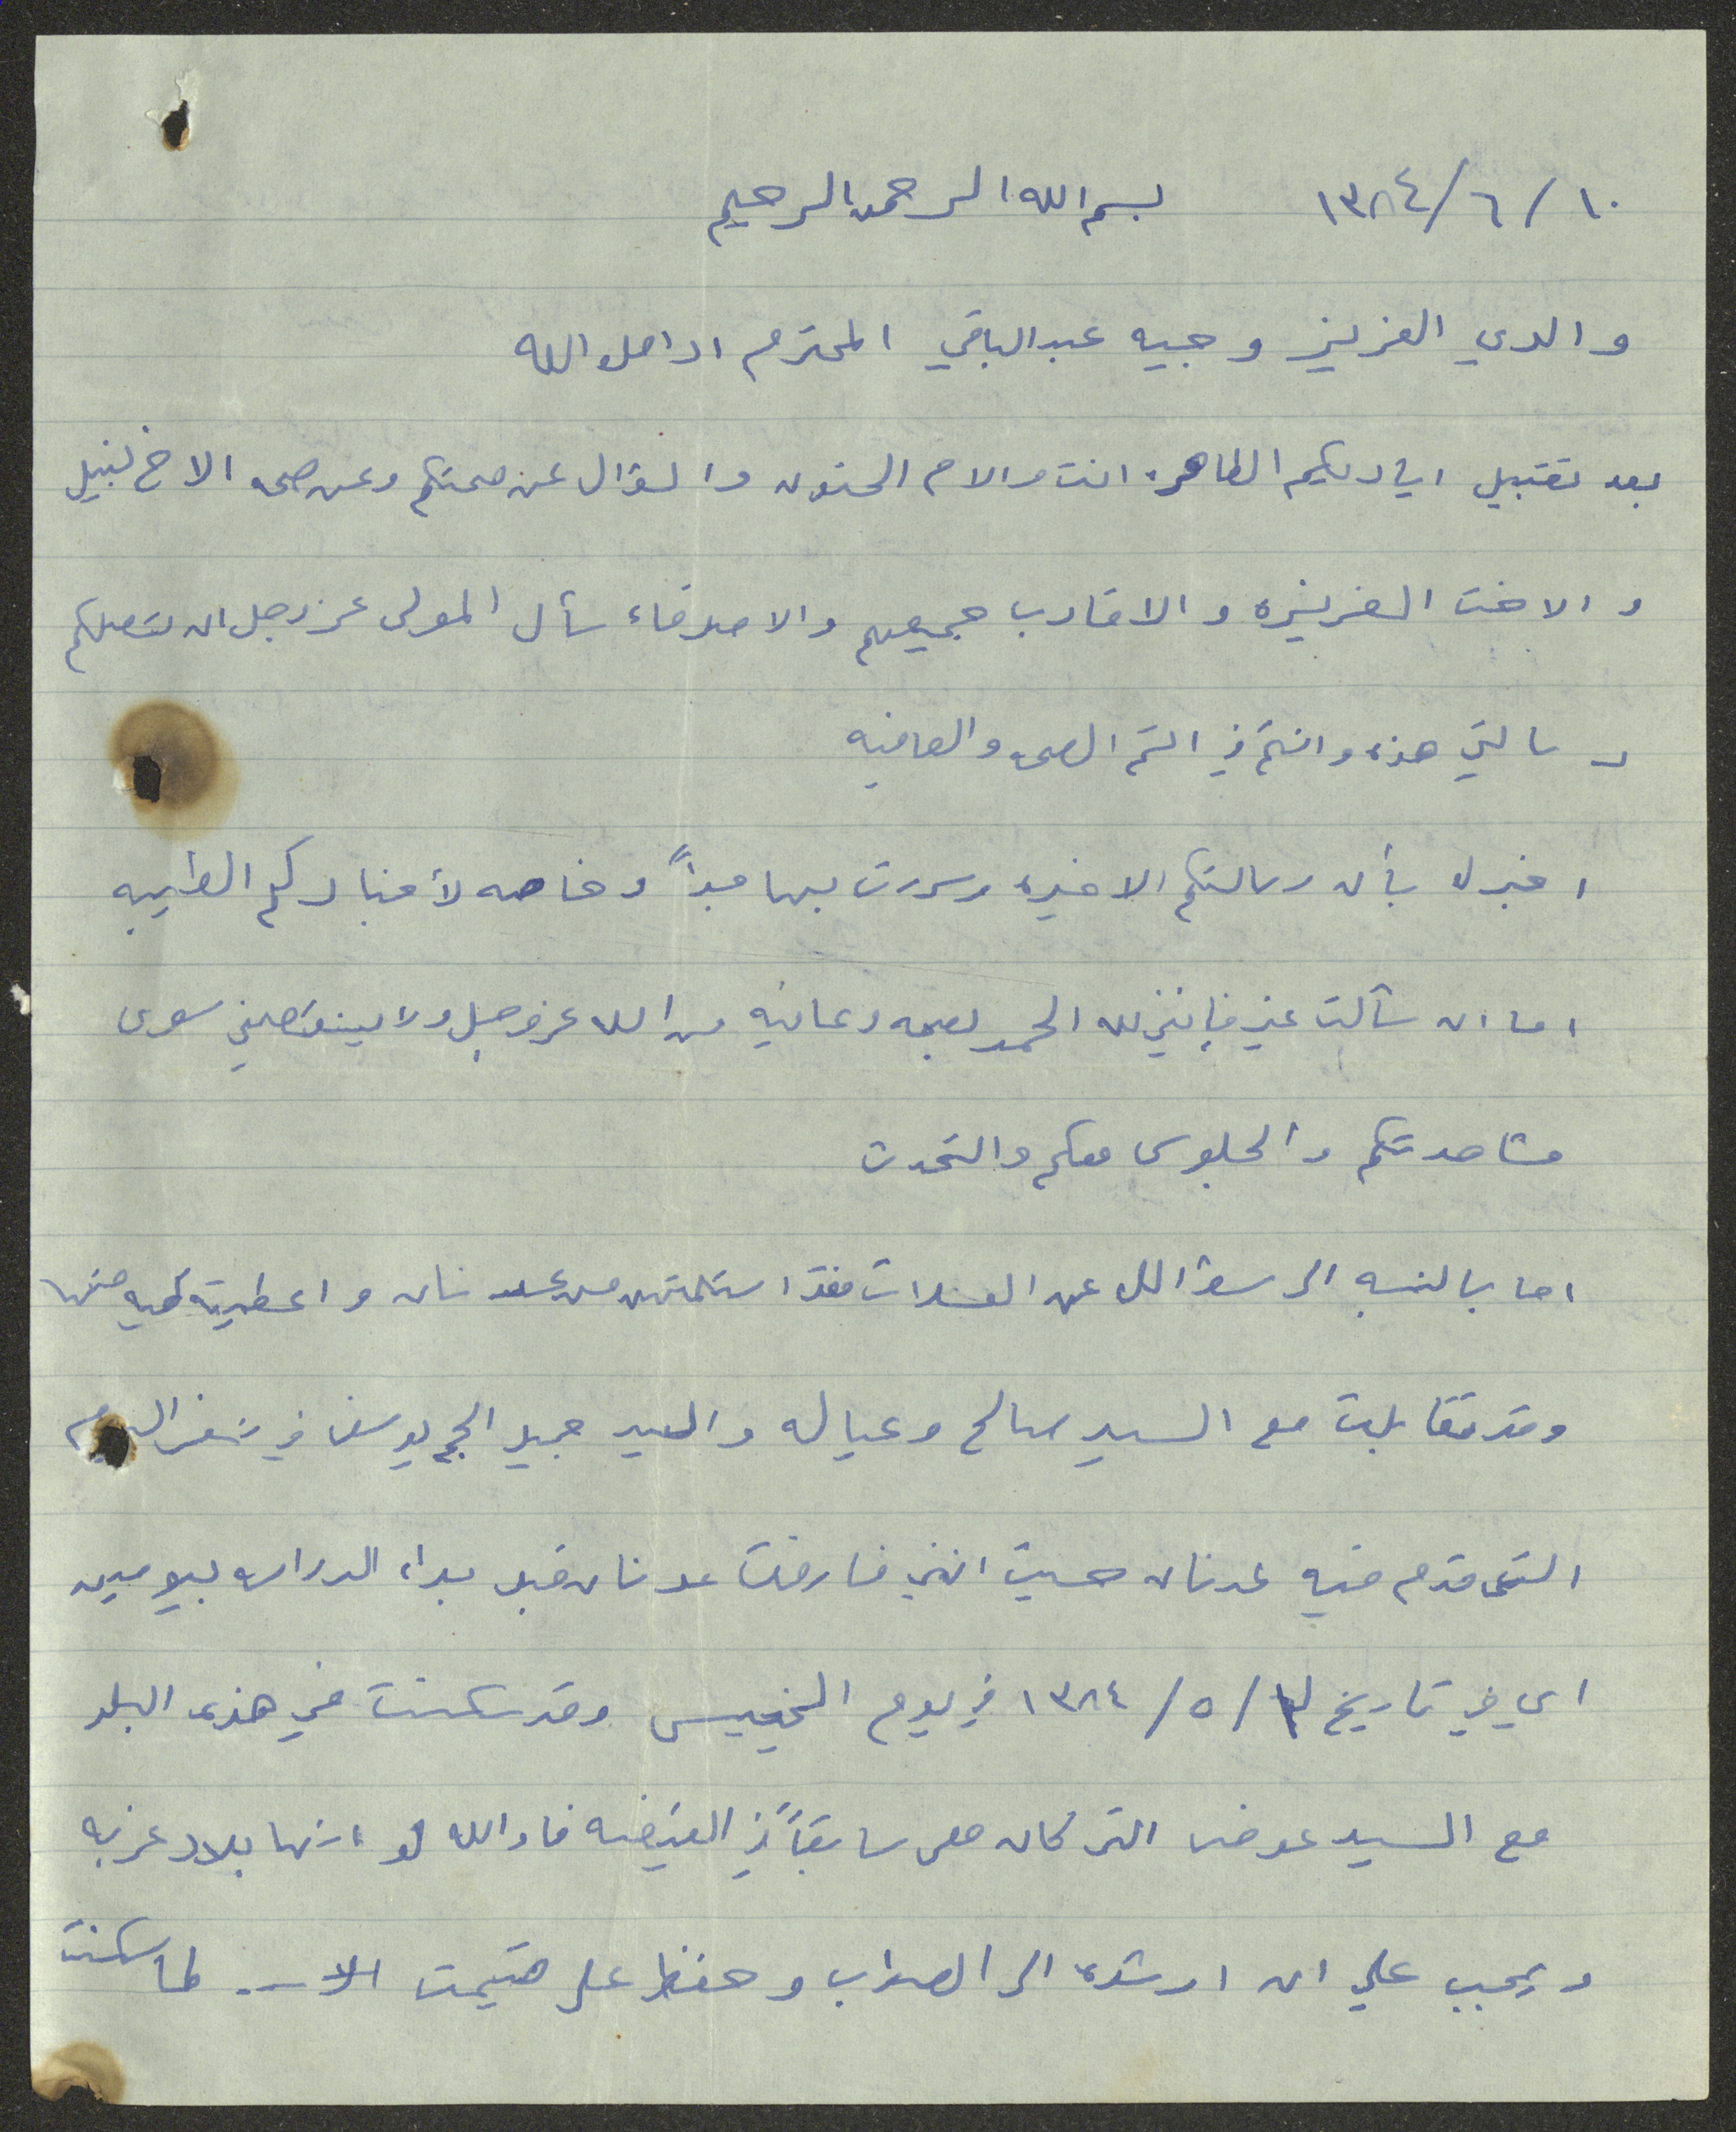 ١٠/٦/١٣٨٤ بسم الله الرحمن الرحيم
والدي العزيز وجيه عبد الباقي المحترم ادامك الله
بعد تقبيل اياديكم الطاهره انت والام الحنون والسؤال عن صحتكم وعن صحه الاخ نبيل
والاخت العزيزه والاقارب جميعهم والاصدقاء سأل المولى عز وجل ان تصلكم
رسالتي هذه وانتم في اتم الصحه والعافيه
اخبرك بأن رسالتكم الاخيره وسررت بها جداً وخاصه لأخباركم الطيبه
اما ان سألت عني فإنني لله الحمد بصحه وعافيه من الله عز وجل ولا ينقصني سوى
مشاهدتكم والجلوس معكم والتحدث
اما بالنسبه الى سؤالك عن الغسلات فقد استلمتهن من عدنان واعطيته كميه منها
وقد تقابلت مع السيد صالح وعياله والسيد جميل الحج يوسف في نفس اليوم
التى قدم فيه عدنان حيث انني فارقت عدنان قبل بداء الدراسه بيومين
اي في تاريخ /٥/١٣٨٤ في يوم الخميس وقد سكنت في هذه البلد
مع السيد عوض التى كان معى سابقاً في فاوالله لو انها بلاد غربه
ويجب علي ان ارشده الى الصواب وحفظ على قيمت لما سكنت